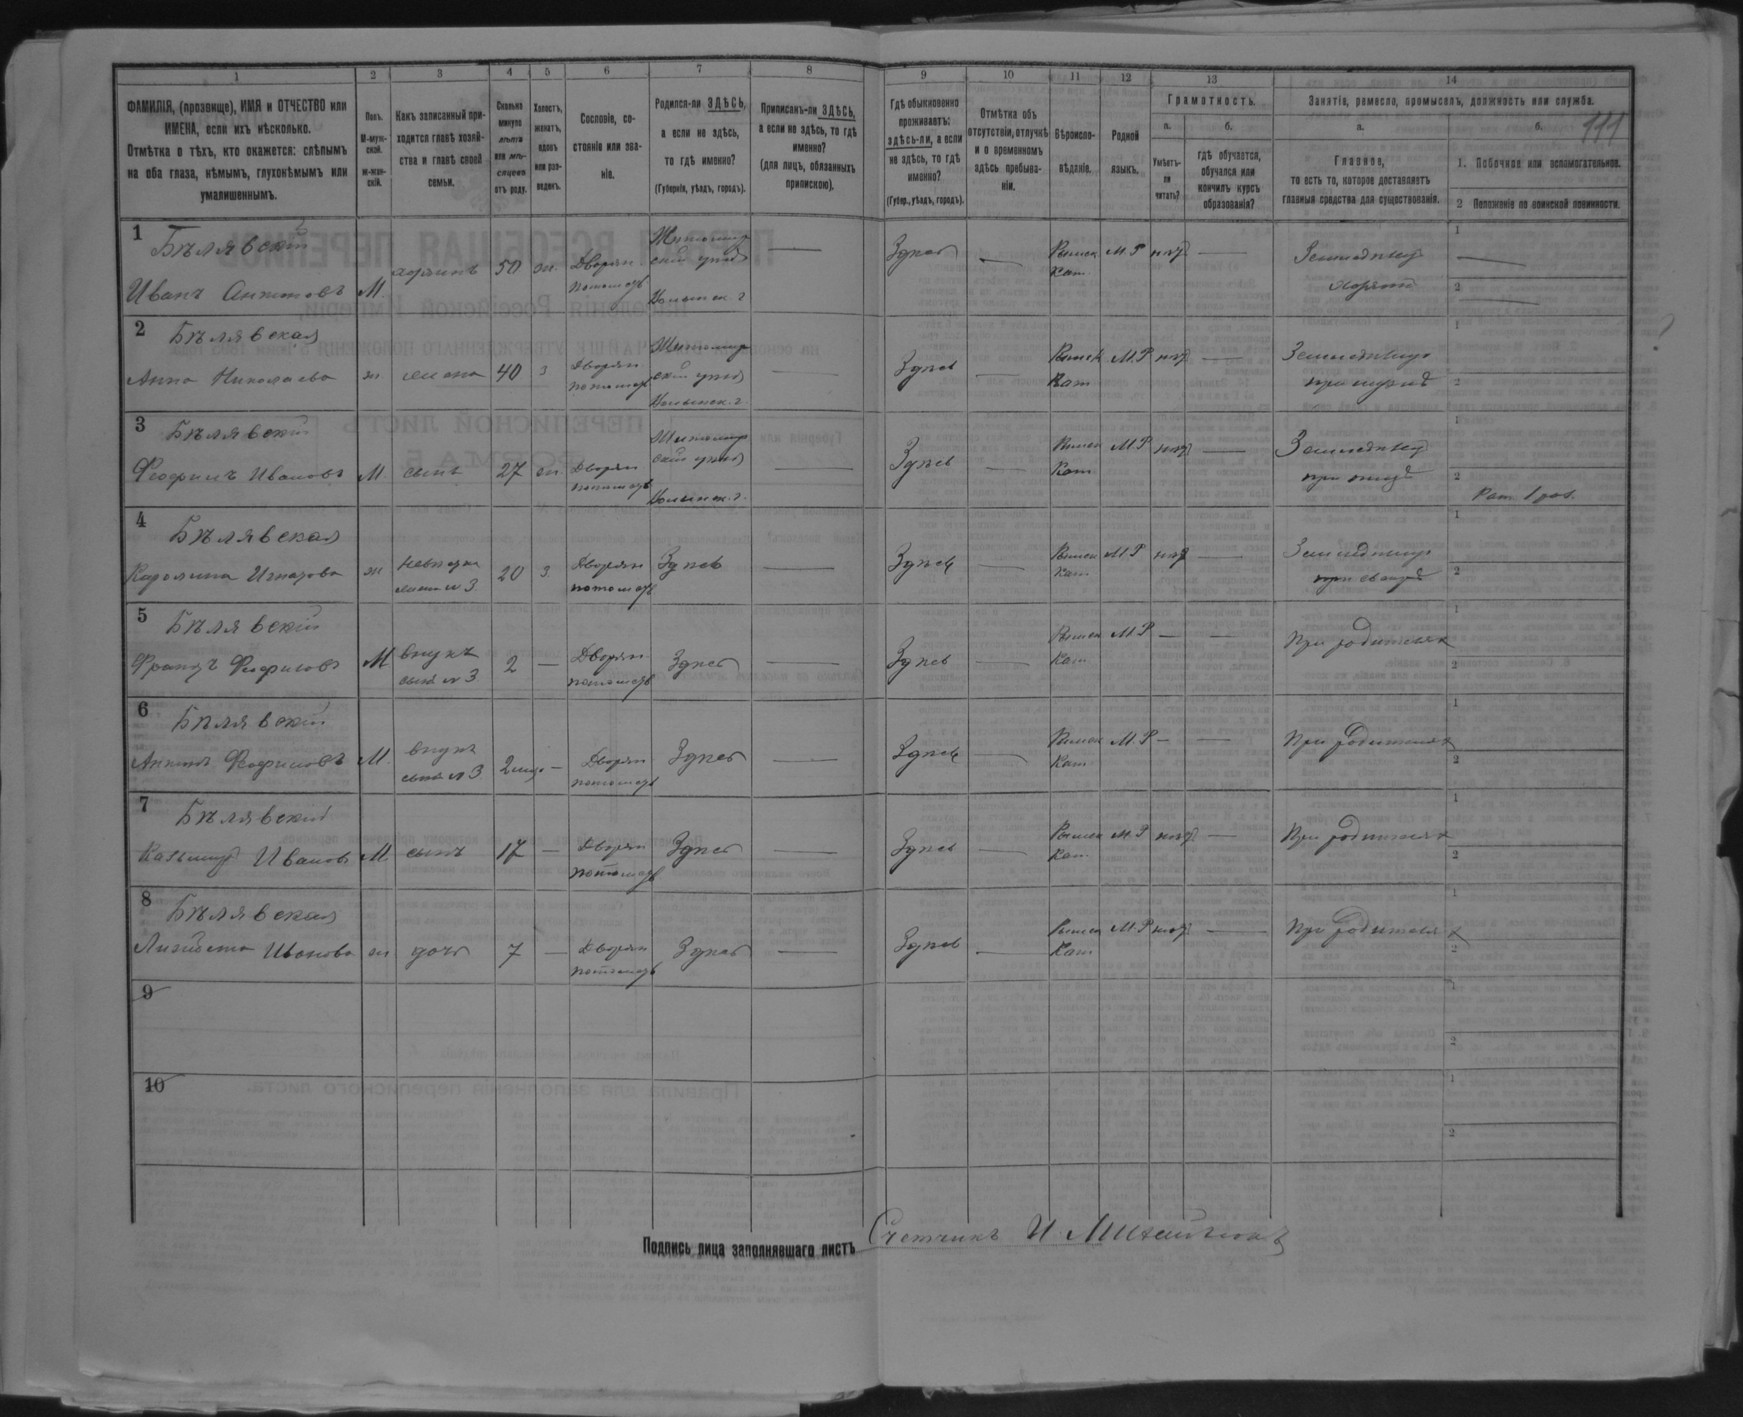 1 2 3 4 5 6 7 8 9 10 11 12 13 14
ФАМИЛІЯ, (прозвище), ИМЯ и ОТЧЕСТВО или
ИМЕНА, если ихъ нѣсколько.
Отмѣтка о тѣхъ, кто окажется: слѣпымъ
на оба глаза, нѣмымъ, глухонѣмымъ или
умалишеннымъ.
Полъ.
М-муж-
ской.
ж-жен-
скій.
Какъ записанный при-
ходится главѣ хозяй-
ства и главѣ своей
семьи.
Сколько
минуло
лѣтъ
или мѣ-
сяцевъ
отъ роду.
Холостъ,
женатъ,
вдовъ
или раз-
веденъ.
Сословіе, со-
стояніе или зва-
ніе.
Родился-ли ЗДѢСЬ,
а если не здѣсь,
то гдѣ именно?
(Губернія, уѣздъ, городъ).
Приписанъ-ли ЗДѢСЬ,
а если не здѣсь, то гдѣ
именно?
(для лицъ, обязанныхъ
припискою).
Гдѣ обыкновенно
проживаетъ:
здѣсь-ли, а если
не здѣсь, то гдѣ
именно?
(Губер., уѣздъ, городъ).
Отмѣтка объ
отсутствіи, отлучкѣ
и о временномъ
здѣсь пребыва-
ніи.
Вѣроиспо-
вѣданіе.
Родной
языкъ.
Грамотность.
а.
Умѣетъ-
ли
читать?
б.
гдѣ обучается,
обучался или
кончилъ курсъ
образованія?
Занятіе, ремесло, промыселъ, должность или служба.
а.
Главное,
то есть то, которое доставляетъ
главныя средства для существованія.
б.
111
1. Побочное или вспомогательное.
2 Положеніе по воинской повинности.
1
Бѣлявскій
Иванъ Антоновъ М. 50 ж. Дворян
потомст
Волынск. г
Здѣсь — Римск М.Р нѣт
Кат.
1 —
2 —
2
Бѣлявская
Анна Николаева ж жена 40 з Дворян
потомст
Волынск. г.
— Здѣсь — Римск М.Р нѣт —
Кат
Земледѣлец
при мужѣ
1
2
3
Бѣлявскій
Феофилъ Ивановъ М сынъ 27 ж Дворян
потомст
Волынск. г.
— Здѣсь — Римск М.Р нѣт —
Кат
Земледѣлец
при отцѣ
1
2
4
Бѣлявская
Каролина ж невѣстка
жена № 3 20 з. Дворян
потомст Здѣсь — Здѣсь — Римск М.Р нѣт —
Кат
1
2
5
Бѣлявскій
Францъ Феофиловъ М внукъ
сынъ № 3 2 — Дворян
потомст Здѣсь — Здѣсь — Римск М.Р — —
Кат
При родителях
1
2
6
Бѣлявскій
Антонъ Феофиловъ М внукъ
сынъ № 3 2 мѣс — Дворян
потомст Здѣсь — Здѣсь — Римск М.Р — —
Кат
При родителях
1
2
7
Бѣлявскій
Казимир Иванов М сынъ 17 — Дворян
потомст Здѣсь — Здѣсь — Римск М.Р нѣт —
Кат
При родителях
1
2
8
Бѣлявская
Иванова ж дочь 7 — Дворян
потомст Здѣсь — Здѣсь — Римск М.Р нѣт —
Кат
При родителях
1
2
9
1
2
10
1
2
Подпись лица заполнявшаго листъ Счетчикъ И